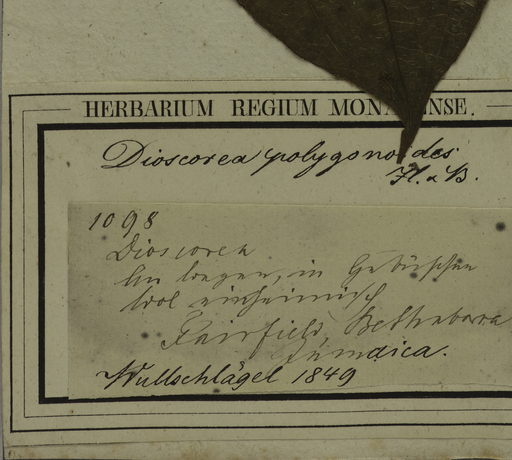 HERBARIUM REGIUM MONACENSE.
Dioscorea polygonoides.
H. & B.
1098
Dioscorea
in Gebüschen
Wol einheimisch
Fairfield, Bethabara
Jamaica.
Wullschlägel 1849